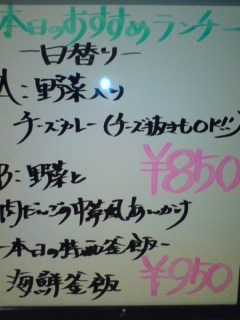 本日のおすすめランチ
ー日替りー
A:野菜入り
チーズカレー(チーズ抜きもOK!!)
¥850
B:野菜と
肉だんごの中華風あんかけ
ー本日の特画釜飯ー
¥950
海鮮釜飯